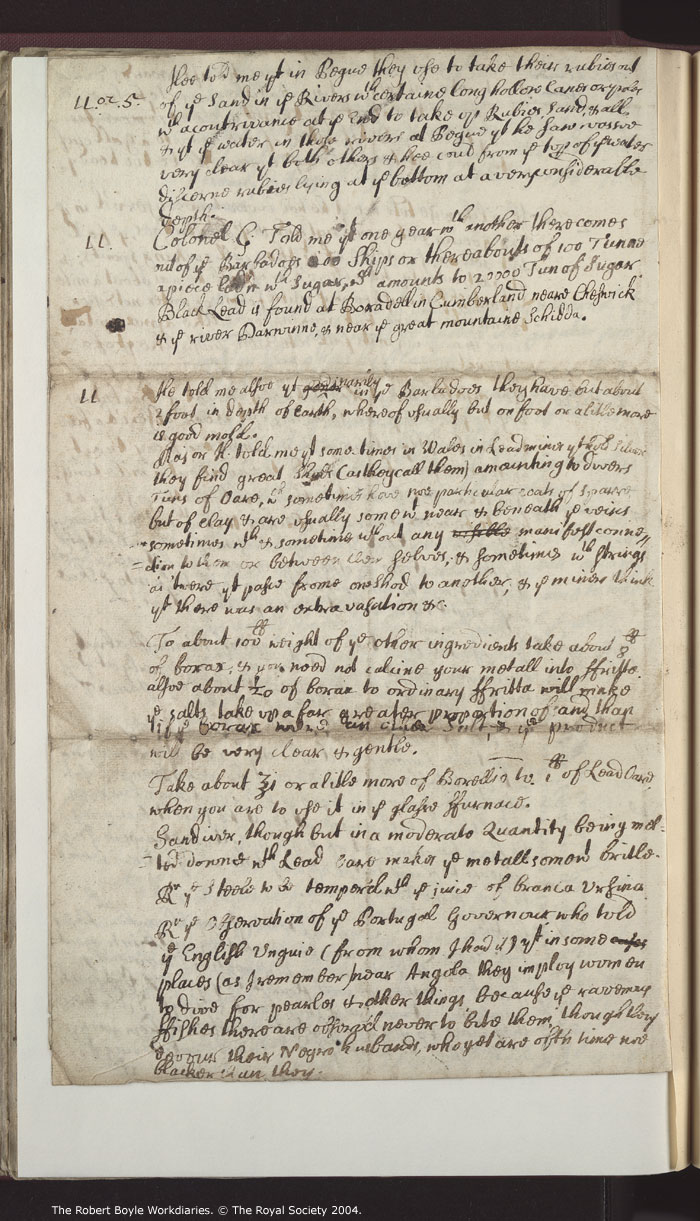 Hee told me yt in Pegue they use to take theire rubies out
11 or 5. of ye Sand in ye Rivers wth certaine long hollow Canes or pipes
wth a contrivance at ye End to take up Rubies, Sand, & all.
& yt ye water in those rivers at Pegue yt he saw was soe
very clear yt both others & hee coud from ye top of ye water
discerne rubies lying at ye bottom at a very considerable
depth.
11. Colonel C: Told me yt one year wth another there comes
out of ye Barbadoes 200 Ships or thereabouts of 100 Tunne
apiece laden wth Sugar, wch amounts to 20000 Tun of Sugar.
Black Lead is found at Boradell in Cumberland neare Cheswick
& ye river Darwinne, & near ye great mountaine Schidda.
11 He told me alsoe yt in ye Barbadoes they have but about
2 foot in depth of Earth, whereof usually but on foot or a litle more
is good mold.
Major H. told me yt some times in Wales in Lead mines
they find great (as they call them) amounting to divers
Tuns of Oare, wch sometimes have noe particular coats of sparre
but of clay & are usually somewt near & beneath ye veines
sometimes wth & sometime wthout any visible manifest conne=
=ction to them or between their selves, & sometimes wth strings
as twere yt passe frome one shod to another, & ye miners think
yt there was an extravasation &c.
To about 100 lb weight of ye other ingredients take about lb
of borax, & you need not calcine your metall into ffritte.
alsoe about of borax to ordinary ffritta will make
ye salts take up a far greater proportion of sand than
ye product
will be very clear & gentle.
Take about ℥i or a litle more of Borellio to 1 lb of Lead Oare,
when you are to use it in ye glasse ffurnace.
Sandiver, though but in a moderate Quantity being mel=
=ted donne wth Lead Oare makes ye metall somewt brittle.
Rr ye Steele to be temper'd wth ye juice of branca Ursina
Rr ye Observation of ye Portugal Governour who told
ye English (from whom I had it) yt in some
places (as I remember) near Angola they imploy women
to dive for pearles & other things because ye ravenous
ffishes there are observ'd never to bite them, though they
devour their Negro husbands, who yet are oftn time noe
blacker than they.
The Robert Boyle Workdiaries. © The Royal Society 2004.